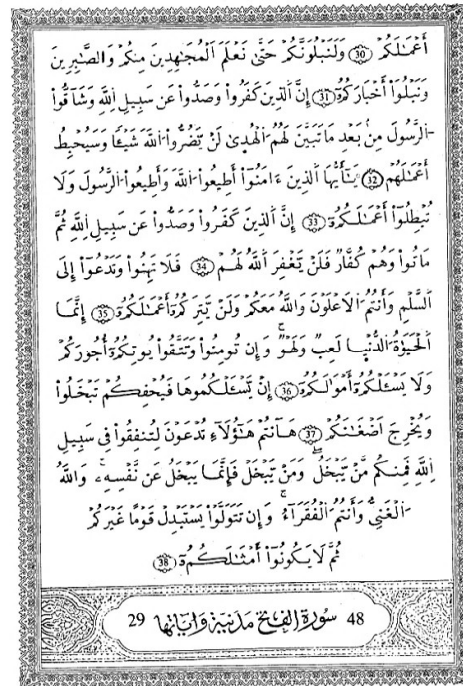 أَعْمَٰلَكُمْ 30 وَلَنَبْلُوَنَّكُمْ حَتَّىٰ نَعْلَمَ اَ۬لْمُجَٰهِدِينَ مِنكُمْ وَالصَّٰبِرِينَ
وَنَبْلُوَا۟ أَخْبَارَكُمُۥٓ 31 إِنَّ اَ۬لذِينَ كَفَرُوا۟ وَصَدُّوا۟ عَن سَبِيلِ اِ۬للَّهِ وَشَآقُّوا۟
اُ۬لرَّسُولَ مِنۢ بَعْدِ مَا تَبَيَّنَ لَهُمُ اُ۬لْهُدَىٰ لَنْ يَّضُرُّوا۟ اُ۬للَّهَ شَيْـًٔا وَسَيُحْبِطُ
أَعْمَٰلَهُمْ 32 يَٰٓأَيُّهَا اَ۬لذِينَ ءَامَنُوٓا۟ أَطِيعُوا۟ اُ۬للَّهَ وَأَطِيعُوا۟ اُ۬لرَّسُولَ وَلَا
تُبْطِلُوٓا۟ أَعْمَٰلَكُمُۥٓ 33 إِنَّ اَ۬لذِينَ كَفَرُوا۟ وَصَدُّوا۟ عَن سَبِيلِ اِ۬للَّهِ ثُمَّ
مَاتُوا۟ وَهُمْ كُفَّارٌ فَلَنْ يَّغْفِرَ اَ۬للَّهُ لَهُمْ 34 فَلَا تَهِنُوا۟ وَتَدْعُوٓا۟ إِلَى
اَ۬لسَّلْمِ وَأَنتُمُ اُ۬لَاعْلَوْنَ وَاللَّهُ مَعَكُمْ وَلَنْ يَّتِرَكُمُۥٓ أَعْمَٰلَكُمُۥٓ 35 إِنَّمَا
اَ۬لْحَيَوٰةُ اُ۬لدُّنْيَا لَعِبٌ وَلَهْوٌ وَإِن تُومِنُوا۟ وَتَتَّقُوا۟ يُوتِكُمُۥٓ أُجُورَكُمْ
وَلَا يَسْـَٔلْكُمُۥٓ أَمْوَٰلَكُمُۥٓ 36 إِنْ يَّسْـَٔلْكُمُوهَا فَيُحْفِكُمْ تَبْخَلُوا۟
وَيُخْرِجَ اَضْغَٰنَكُمْ 37 هَآنتُمْ هَٰٓؤُلَآءِ تُدْعَوْنَ لِتُنفِقُوا۟ فِى سَبِيلِ
اِ۬للَّهِ فَمِنكُم مَّنْ يَّبْخَلُ وَمَنْ يَّبْخَلْ فَإِنَّمَا يَبْخَلُ عَن نَّفْسِهِۦ وَاللَّهُ
اُ۬لْغَنِىُّ وَأَنتُمُ اُ۬لْفُقَرَآءُ وَإِن تَتَوَلَّوْا۟ يَسْتَبْدِلْ قَوْمًا غَيْرَكُمْ
ثُمَّ لَا يَكُونُوٓا۟ أَمْثَٰلَكُمُۥٓ 38
48 سورة الفتح مدنية وآياتها 29